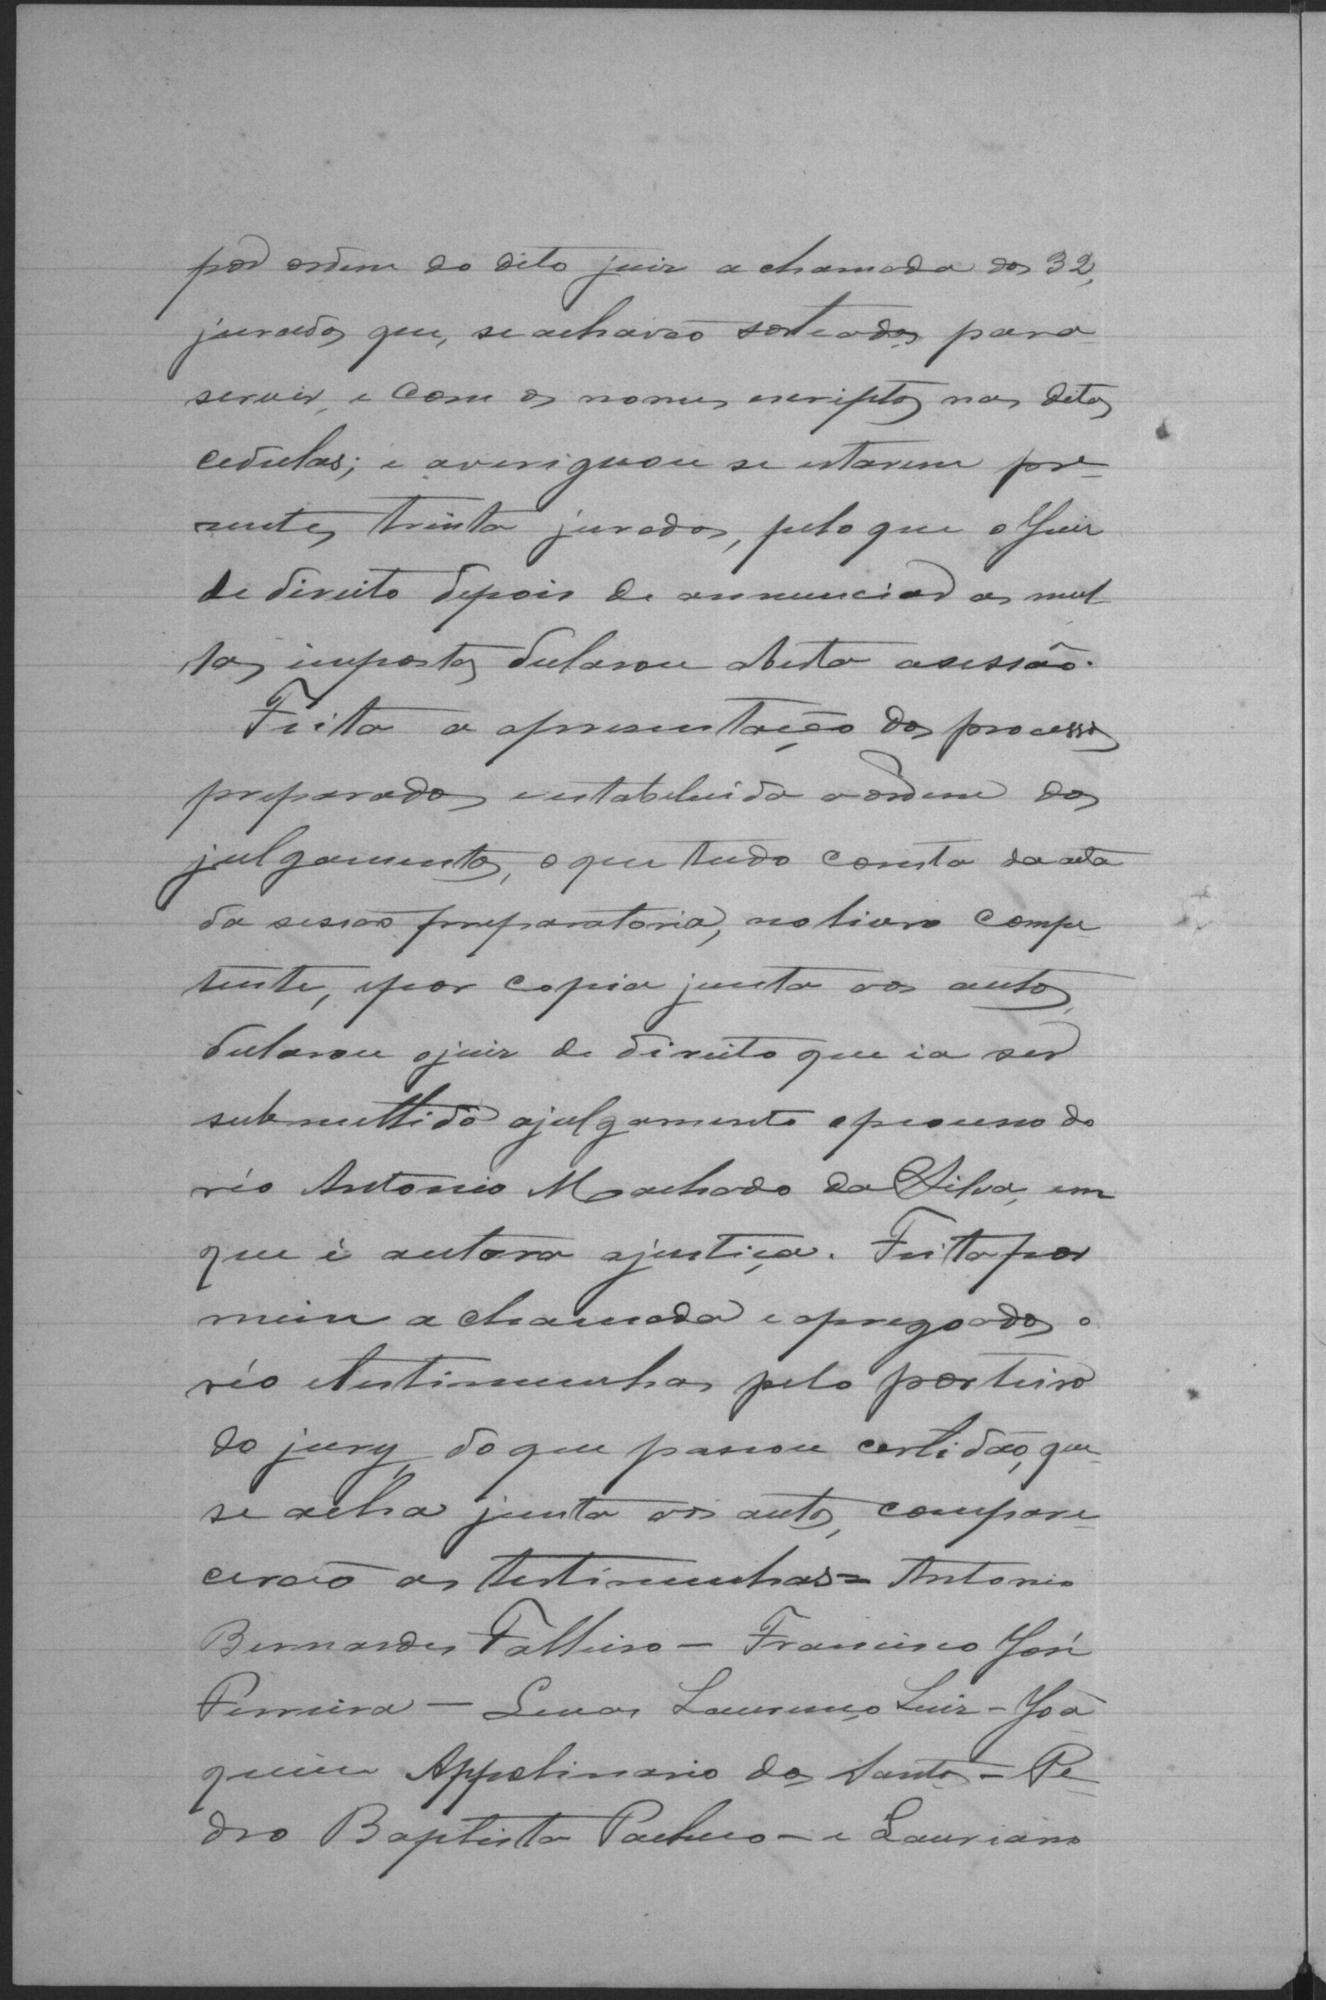 por ordem do dito juiz a chamada dos 32,
jurados que, se achavão sorteados para
servir, e com os nomes escriptos nas ditas
cedulas; e averiguou se estarem pre-
sentes trinta jurados, pelo que o Juiz
de direito depois de annunciar as mul-
tas impostas declarou aberta a sessão.
Feita a apresentação dos processos
preparados e estabelecida a ordem dos
julgamentos, o que tudo consta da acta
da sessão preparatoria, no livro compe-
tente, e por copia junta aos autos,
declarou o juiz de direito que ia ser
submettido a julgamento o processo do
réo Antonio Machado da Silva, em
que é autora a justiça. Feita por
mim a chamada e apregoados o
réo e testimunhas pelo porteiro
do jury, do que passou certidão, que
se acha junta aos autos, compare-
cerão as testimunhas = Antonio
Bernardes Falheiro - Francisco José
Pereira - Lucas Lourenço Luiz - Joa
quim Appolinario dos Santos - Pe-
dro Baptista Pacheco - e Lauriano